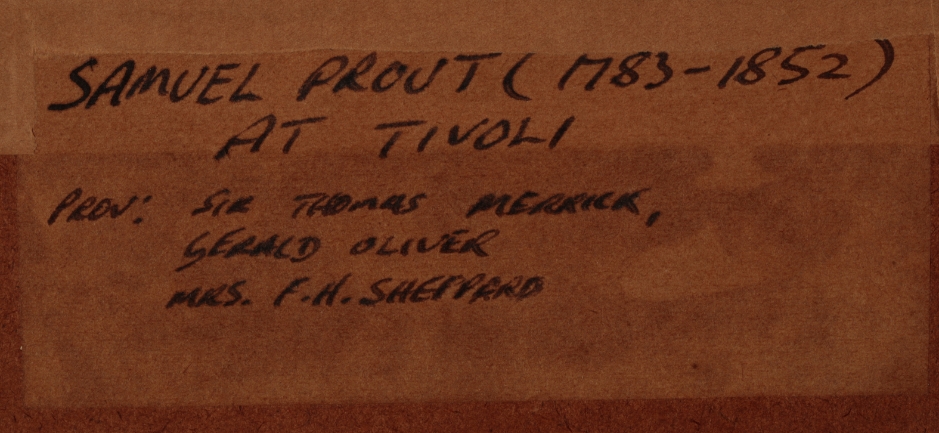 SAMUEL PROUT (1783-1852)
AT TIVOLI
PROV: SIR THOMAS MERRICK,
GERALD OLIVER
MRS. F.H. SHEPPARD